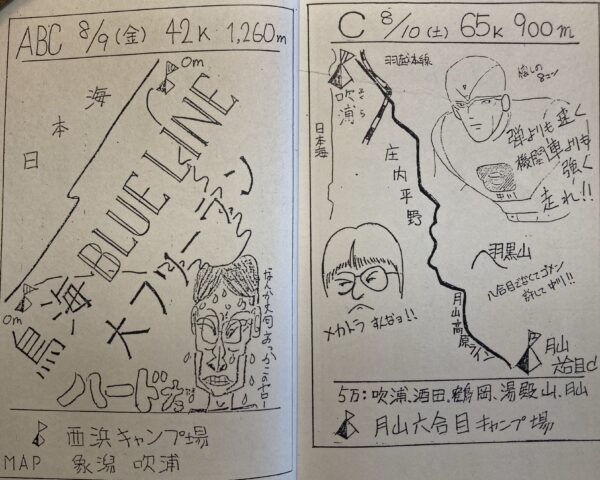 ABC 8/9(金) 42K 1,260m
0m
日本海
鳥海 BLUE LINE
大ブリーデン
0m
ハードだな
西浜キャンプ場
MAP 象潟 吹浦
C 8/10(土) 65K 900m
羽越本線
吹浦
日本海
庄内平野
弾よりも速く
機関車よりも
強く
走れ!!
羽黒山
八合目でなくてゴメン
許して
メカトラ すんなョ!!
月山高原ライン
月山
六合目C
5万:吹浦、酒田、鶴岡、湯殿山、月山
月山六合目キャンプ場